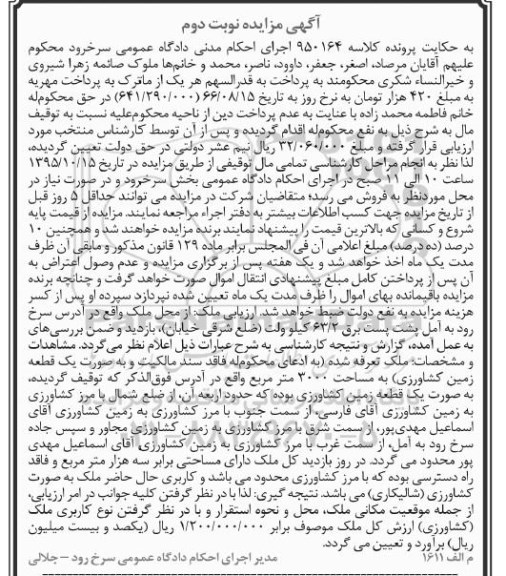 آگهی مزایده نوبت دوم
به حکایت پرونده کلاسه ۹۵۰۱۶۴ اجرای احکام مدنی دادگاه عمومی سرخرود محکوم
علیهم آقایان مرصاد، اصغر، جعفر، داوود، ناصر، محمد و خانم‌ها ملوک صائمه زهرا شیروی
و خیرالنساء شکری محکومند به پرداخت به قدرالسهم هر یک از ماترک به پرداخت مهریه
به مبلغ ۴۲۰ هزار تومان به نرخ روز به تاریخ ۶۶/۰۸/۱۵ (۶۴۱/۲۹۰/۰۰۰) در حق محکوم‌له
خانم فاطمه محمد زاده با عنایت به عدم پرداخت دین از ناحیه محکوم‌علیه نسبت به توقیف
مال به شرح ذیل به نفع محکوم‌له اقدام گردیده و پس از آن توسط کارشناس منتخب مورد
ارزیابی قرار گرفته و مبلغ ۳۲/۰۶۰/۰۰۰ ریال نیم عشر دولتی در حق دولت تعیین گردیده،
لذا نظر به انجام مراحل کارشناسی تمامی مال توقیفی از طریق مزایده در تاریخ ۱۳۹۵/۱۰/۱۵
ساعت ۱۰ الی ۱۱ صبح در اجرای احکام دادگاه عمومی بخش سرخرود و در صورت نیاز در
محل موردنظر به فروش می رسد؛ متقاضیان شرکت در مزایده می توانند حداقل ۵ روز قبل
از تاریخ مزایده جهت کسب اطلاعات بیشتر به دفتر اجراء مراجعه نمایند. مزایده از قیمت پایه
شروع و کسانی که بالاترین قیمت را پیشنهاد نمایند برنده مزایده خواهند شد و همچنین ۱۰
درصد (ده درصد) مبلغ اعلامی آن فی المجلس برابر ماده ۱۲۹ قانون مذکور و مابقی آن ظرف
مدت یک ماه اخذ خواهد شد و یک هفته پس از برگزاری مزایده و عدم وصول اعتراض به
آن پس از پرداختن کامل مبلغ پیشنهادی انتقال اموال صورت خواهد گرفت و چنانچه برنده
مزایده باقیمانده بهای اموال را ظرف مدت یک ماه تعیین شده نپردازد سپرده او پس از کسر
هزینه مزایده به نفع دولت ضبط خواهد شد. ارزیابی ملک: از محل ملک واقع در آدرس سرخ
رود به آمل پشت پست برق ۶۳/۲ کیلو ولت (ضلع شرقی خیابان)، بازدید و ضمن بررسی‌های
به عمل آمده، گزارش و نتیجه کارشناسی به شرح عبارات ذیل اعلام نظر می‌گردد. مشاهدات
و مشخصات: ملک تعرفه شده (به ادعای محکوم‌له فاقد سند مالکیت و به صورت یک قطعه
زمین کشاورزی) به مساحت ۳۰۰۰ متر مربع واقع در آدرس فوق‌الذکر که توقیف گردیده،
به صورت یک قطعه زمین کشاورزی بوده که حدود اربعه آن، از ضلع شمال با مرز کشاورزی
به زمین کشاورزی آقای فارسی، از سمت جنوب با مرز کشاورزی به زمین کشاورزی آقای
اسماعیل مهدی‌پور، از سمت شرق با مرز کشاورزی به زمین کشاورزی مجاور و سپس جاده
سرخ رود به آمل، از سمت غرب با مرز کشاورزی به زمین کشاورزی آقای اسماعیل مهدی
پور محدود می گردد. در روز بازدید کل ملک دارای مساحتی برابر سه هزار متر مربع و فاقد
راه دسترسی بوده که با مرز کشاورزی محدود می باشد و کاربری حال حاضر ملک به صورت
کشاورزی (شالیکاری) می باشد. نتیجه گیری: لذا با در نظر گرفتن کلیه جوانب در امر ارزیابی،
از جمله موقعیت مکانی ملک، محل و نحوه استقرار و با در نظر گرفتن نوع کاربری ملک
(کشاورزی) ارزش کل ملک موصوف برابر ۱/۲۰۰/۰۰۰/۰۰۰ ریال (یکصد و بیست میلیون
ریال) برآورد و تعیین می گردد.
م الف ۱۶۱۱ مدیر اجرای احکام دادگاه عمومی سرخ رود – جلالی